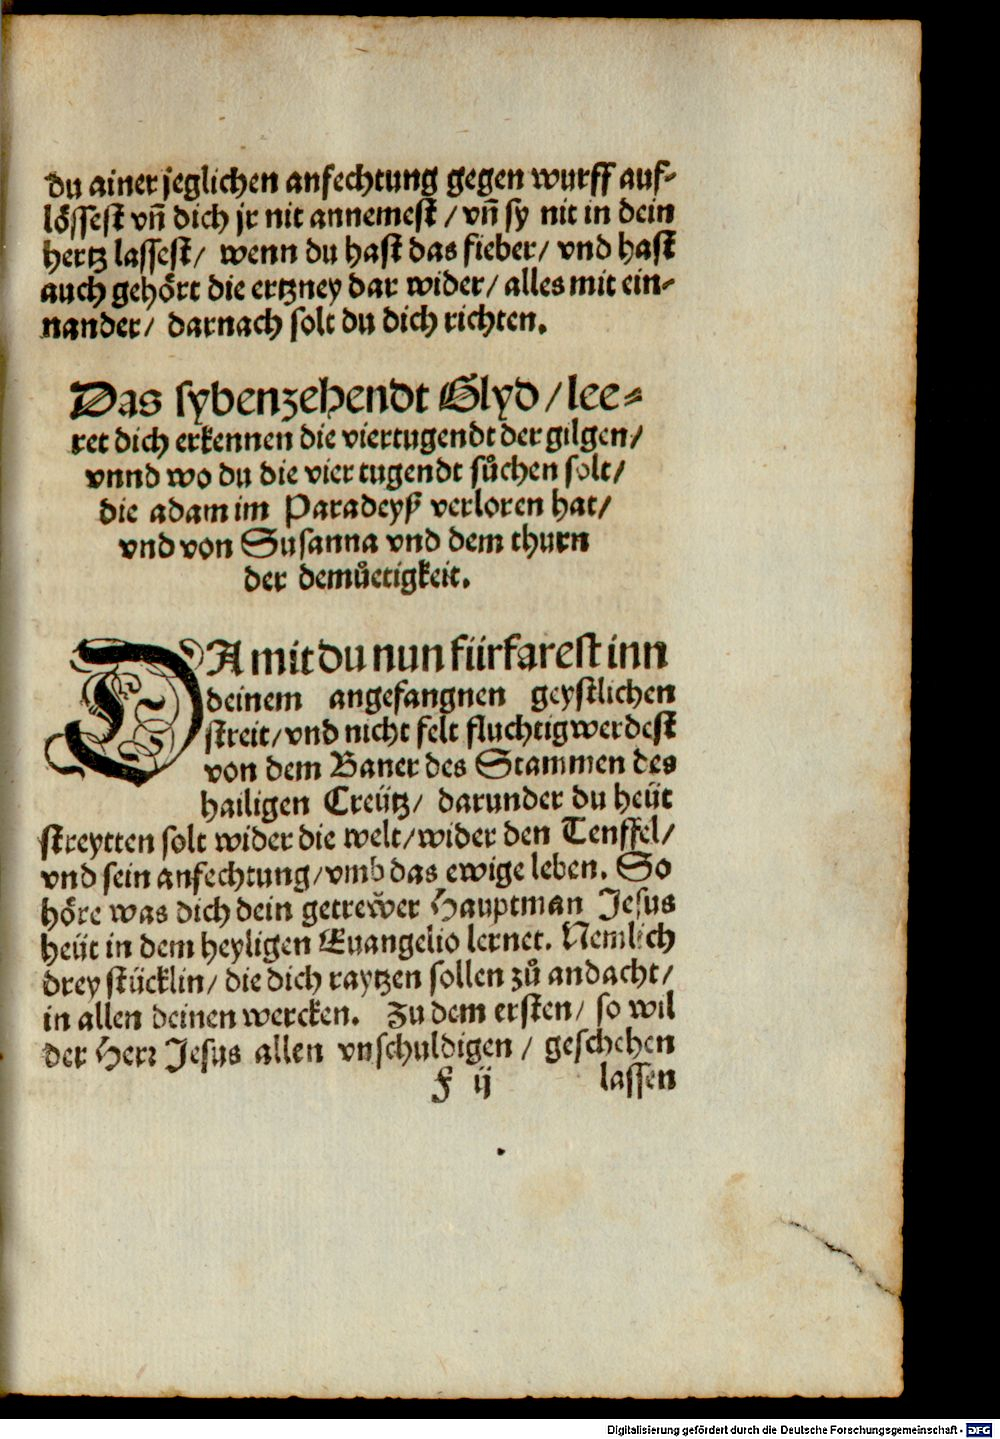 du ainer jeglichen anfechtung gegen wurff auf-
lössest vñ dich jr nit annemest / vñ sy nit in dein
hertz lassest / wenn du hast das fieber / vnd hast
auch gehört die ertzney dar wider / alles mit ein-
nander / darnach solt du dich richten.
Das sybenzehendt Glyd / lee-
ret dich erkennen die viertugendt der gilgen /
vnnd wo du die vier tugendt sůchen solt /
die adam im Paradeyß verloren hat /
vnd von Susanna vnd dem thurn
der demůetigkeit.
DA mit du nun fürfarest inn
deinem angefangnen geystlichen
streit / vnd nicht felt fluchtig werdest
von dem Baner des Stammen des
hailigen Creütz / darunder du heüt
streytten solt wider die welt / wider den Tenffel /
vnd sein anfechtung / vmb das ewige leben. So
höre was dich dein getrewer Hauptman Jesus
heüt in dem heyligen Euangelio lernet. Nemlich
drey stücklin / die dich raytzen sollen zů andacht /
in allen deinen wercken. Zu dem ersten / so wil
der Herr Jesus allen vnschuldigen / geschehen
F ij lassen
Digitalisierung gefördert durch die Deutsche Forschungsgemeinschaft - DFG